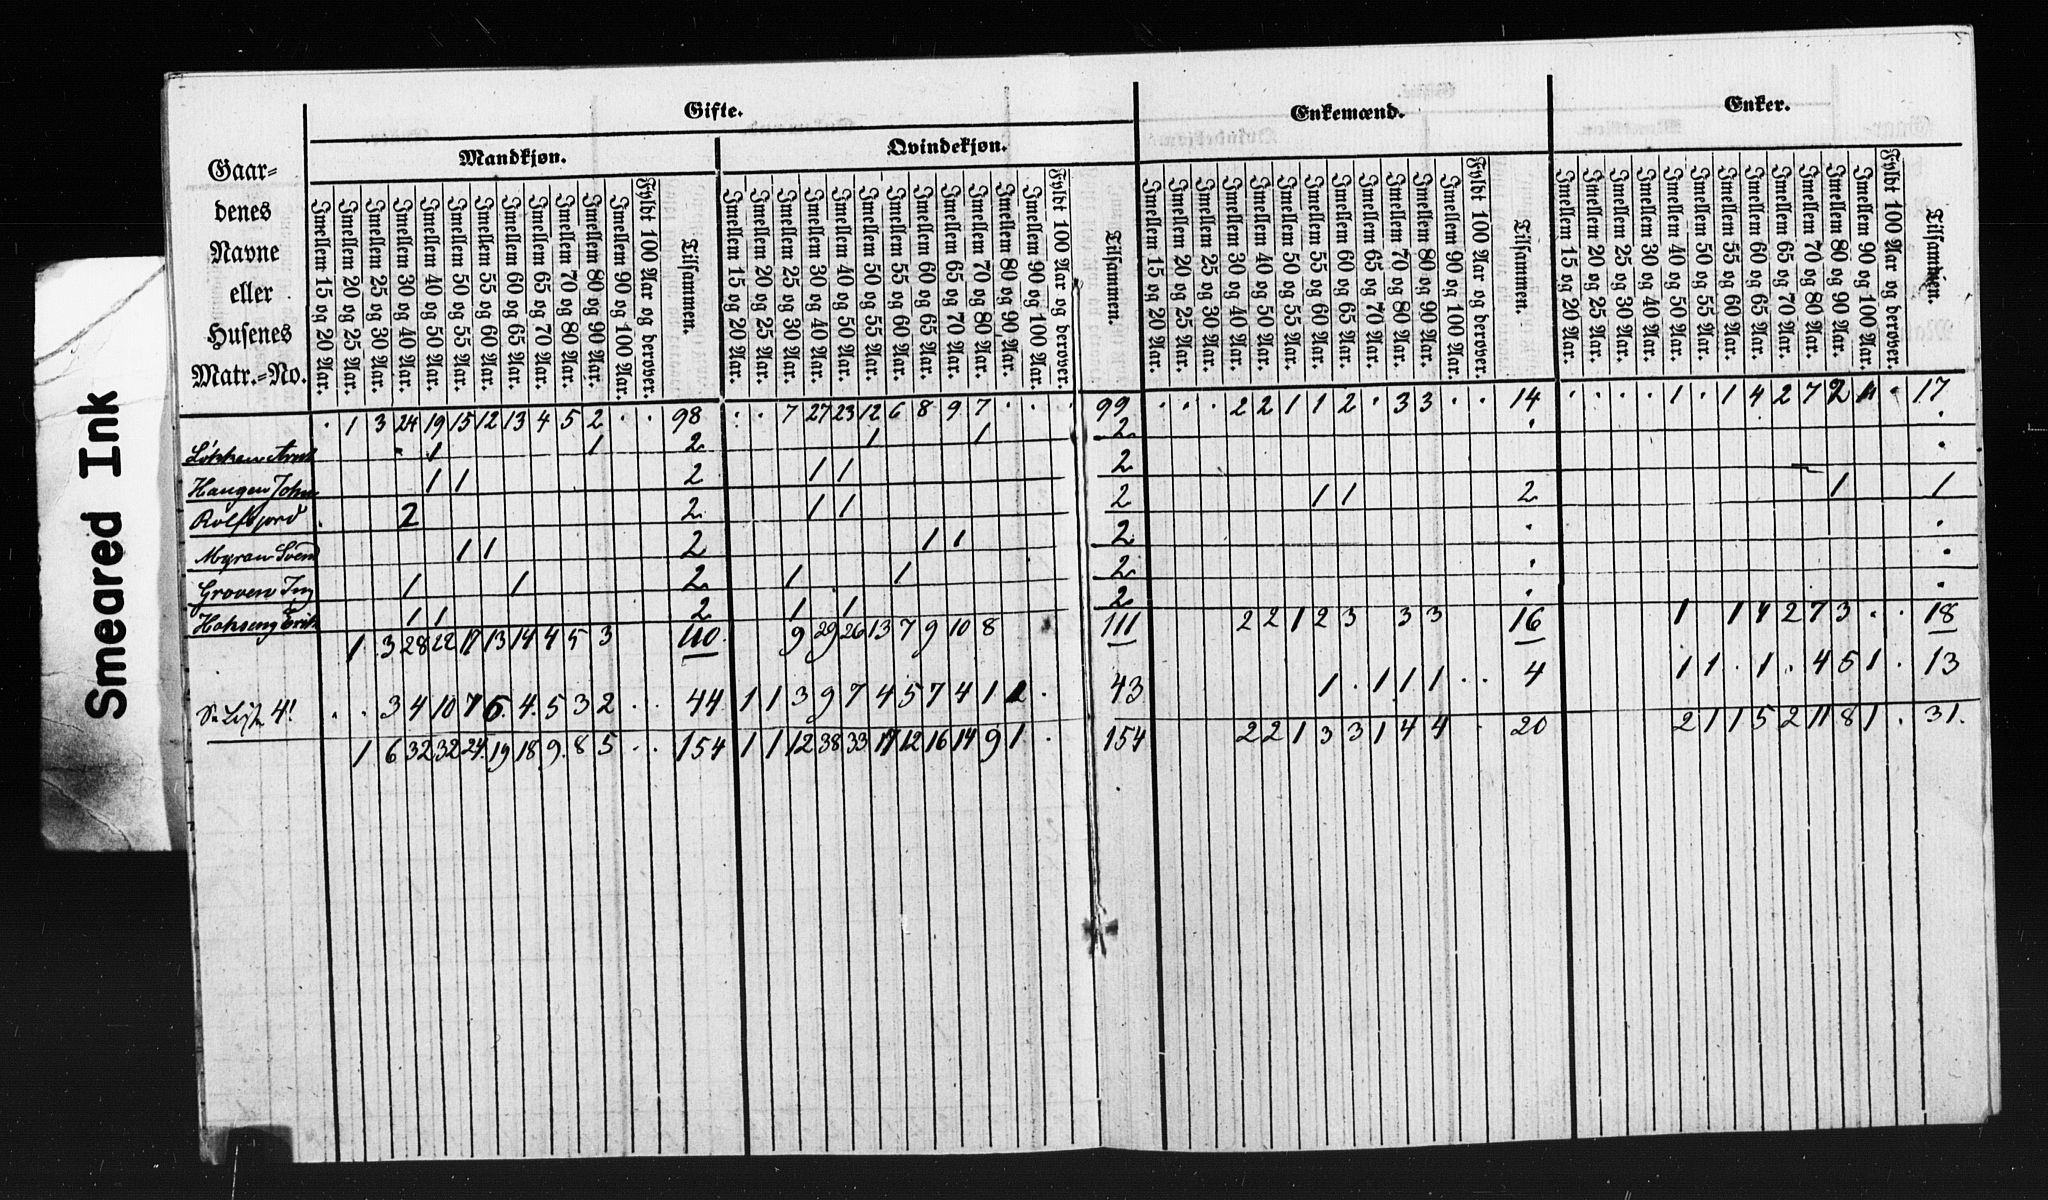 Smeared Ink
Gifte. Enkemænd. Enker.
Mandkjøn. Qvindekjøn.
Gaar-
denes
Navne
eller
Husenes
Matr.-No.
Imellem 15 og 20 Aar. Imellem 20 og 25 Aar. Imellem 25 og 30 Aar. Imellem 30 og 40 Aar. Imellem 40 og 50 Aar. Imellem 50 og 55 Aar. Imellem 55 og 60 Aar. Imellem 60 og 65 Aar. Imellem 65 og 70 Aar. Imellem 70 og 80 Aar. Imellem 80 og 90 Aar. Imellem 90 og 100 Aar. Fyldt 100 Aar og derover. Tilsammen.
Imellem 15 og 20 Aar. Imellem 20 og 25 Aar. Imellem 25 og 30 Aar. Imellem 30 og 40 Aar. Imellem 40 og 50 Aar. Imellem 50 og 55 Aar. Imellem 55 og 60 Aar. Imellem 60 og 65 Aar. Imellem 65 og 70 Aar. Imellem 70 og 80 Aar. Imellem 80 og 90 Aar. Imellem 90 og 100 Aar. Fyldt 100 Aar og derover. Tilsammen.
Imellem 15 og 20 Aar. Imellem 20 og 25 Aar. Imellem 25 og 30 Aar. Imellem 30 og 40 Aar. Imellem 40 og 50 Aar. Imellem 50 og 55 Aar. Imellem 55 og 60 Aar. Imellem 60 og 65 Aar. Imellem 65 og 70 Aar. Imellem 70 og 80 Aar. Imellem 80 og 90 Aar. Imellem 90 og 100 Aar. Fyldt 100 Aar og derover. Tilsammen.
Imellem 15 og 20 Aar. Imellem 20 og 25 Aar. Imellem 25 og 30 Aar. Imellem 30 og 40 Aar. Imellem 40 og 50 Aar. Imellem 50 og 55 Aar. Imellem 55 og 60 Aar. Imellem 60 og 65 Aar. Imellem 65 og 70 Aar. Imellem 70 og 80 Aar. Imellem 80 og 90 Aar. Imellem 90 og 100 Aar. Fyldt 100 Aar og derover. Tilsammen.
. 1 3 24 19 15 12 13 4 5 2 . . 98 . . 7 27 23 12 6 8 9 7 . . . 99 . . . 2 2 1 1 2 . 3 3 . . 14 . . . . 1 . 1 4 2 7 2 . 17
Løkken 1 1 2 1 1 2 . .
Haugen John 1 1 2 1 1 2 .
Rolfsjord 2 2 1 1 2 1 1 2 1 1
Myran Svend 1 1 2 1 1 2 . .
Groven 1 1 2 1 1 2 . .
1 1 2 1 1 2 . .
1 3 28 22 17 13 14 4 5 3 110 9 29 26 13 7 9 10 8 111 2 2 1 2 3 3 3 16 1 1 4 2 7 3 . . 18
4! . . 3 4 10 7 6 4 5 3 2 . . 44 1 1 3 9 7 4 5 7 4 1 1 . 43 1 . 1 1 1 . . 4 1 1 . 1 . 4 5 1 . 13
1 6 32 32 24 19 18 9 8 5 . . 154 1 1 12 38 33 17 12 16 14 9 1 . 154 2 2 1 3 3 1 4 4 . 20 2 1 1 5 2 11 8 1 . 31.